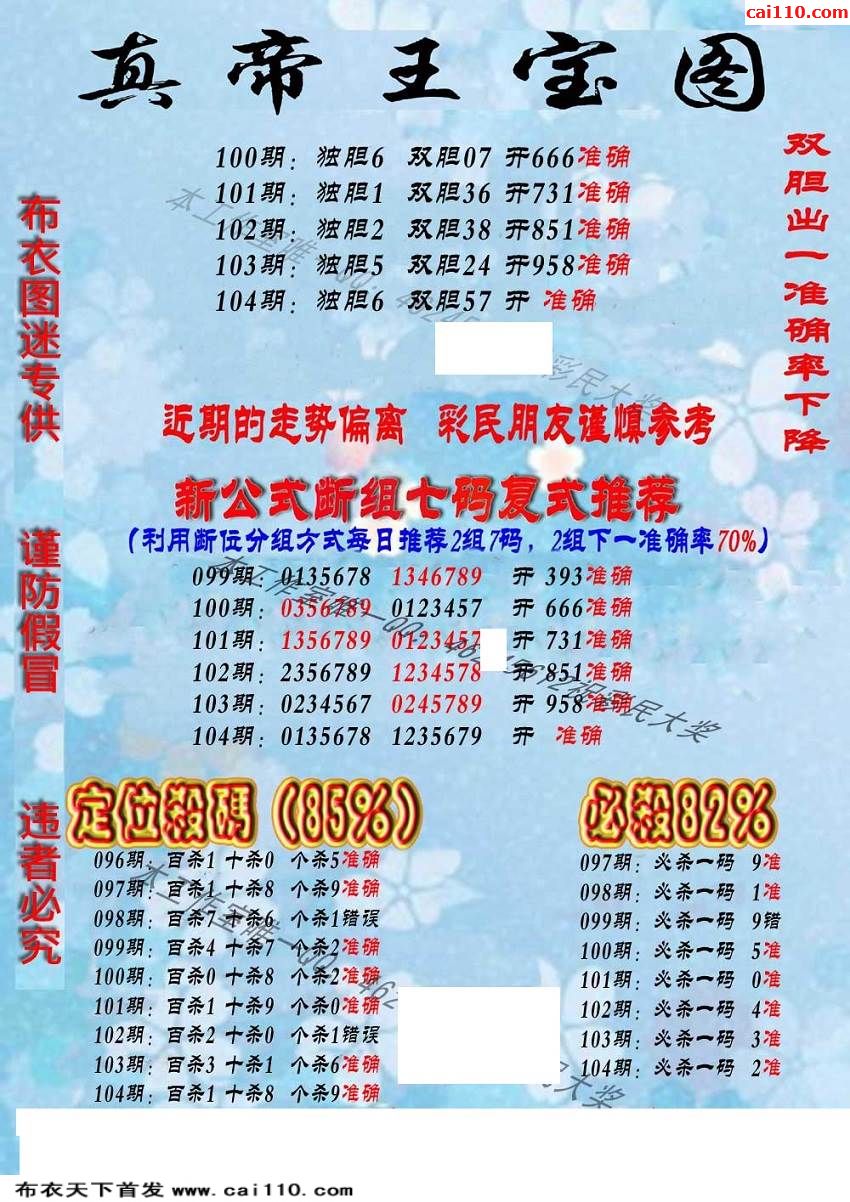 cai110.com
真帝王宝图
100期：独胆6 双胆07 开666准确
101期：独胆1 双胆36 开731准确
102期：独胆2 双胆38 开851准确
103期：独胆5 双胆24 开958准确
104期：独胆6 双胆57 开 准确
双胆出一准确率下降
布衣图迷专供
谨防假冒
违者必究
近期的走势偏离 彩民朋友谨慎参考
新公式断组七码复式推荐
（利用断位分组方式每日推荐2组7码，2组下一准确率70%）
099期：0135678 1346789 开 393准确
100期：0356789 0123457 开 666准确
101期：1356789 0123457 开 731准确
102期：2356789 1234578 开 851准确
103期：0234567 0245789 开 958准确
104期：0135678 1235679 开 准确
定位殺碼（85%）
096期：百杀1 十杀0 个杀5准确
097期：百杀1 十杀8 个杀9准确
098期：百杀7 十杀6 个杀1错误
099期：百杀4 十杀7 个杀2准确
100期：百杀0 十杀8 个杀2准确
101期：百杀1 十杀9 个杀0准确
102期：百杀2 十杀0 个杀1错误
103期：百杀3 十杀1 个杀6准确
104期：百杀1 十杀8 个杀9准确
必殺82%
097期：必杀一码 9准
098期：必杀一码 1准
099期：必杀一码 9错
100期：必杀一码 5准
101期：必杀一码 0准
102期：必杀一码 4准
103期：必杀一码 3准
104期：必杀一码 2准
布衣天下首发 www.cai110.com